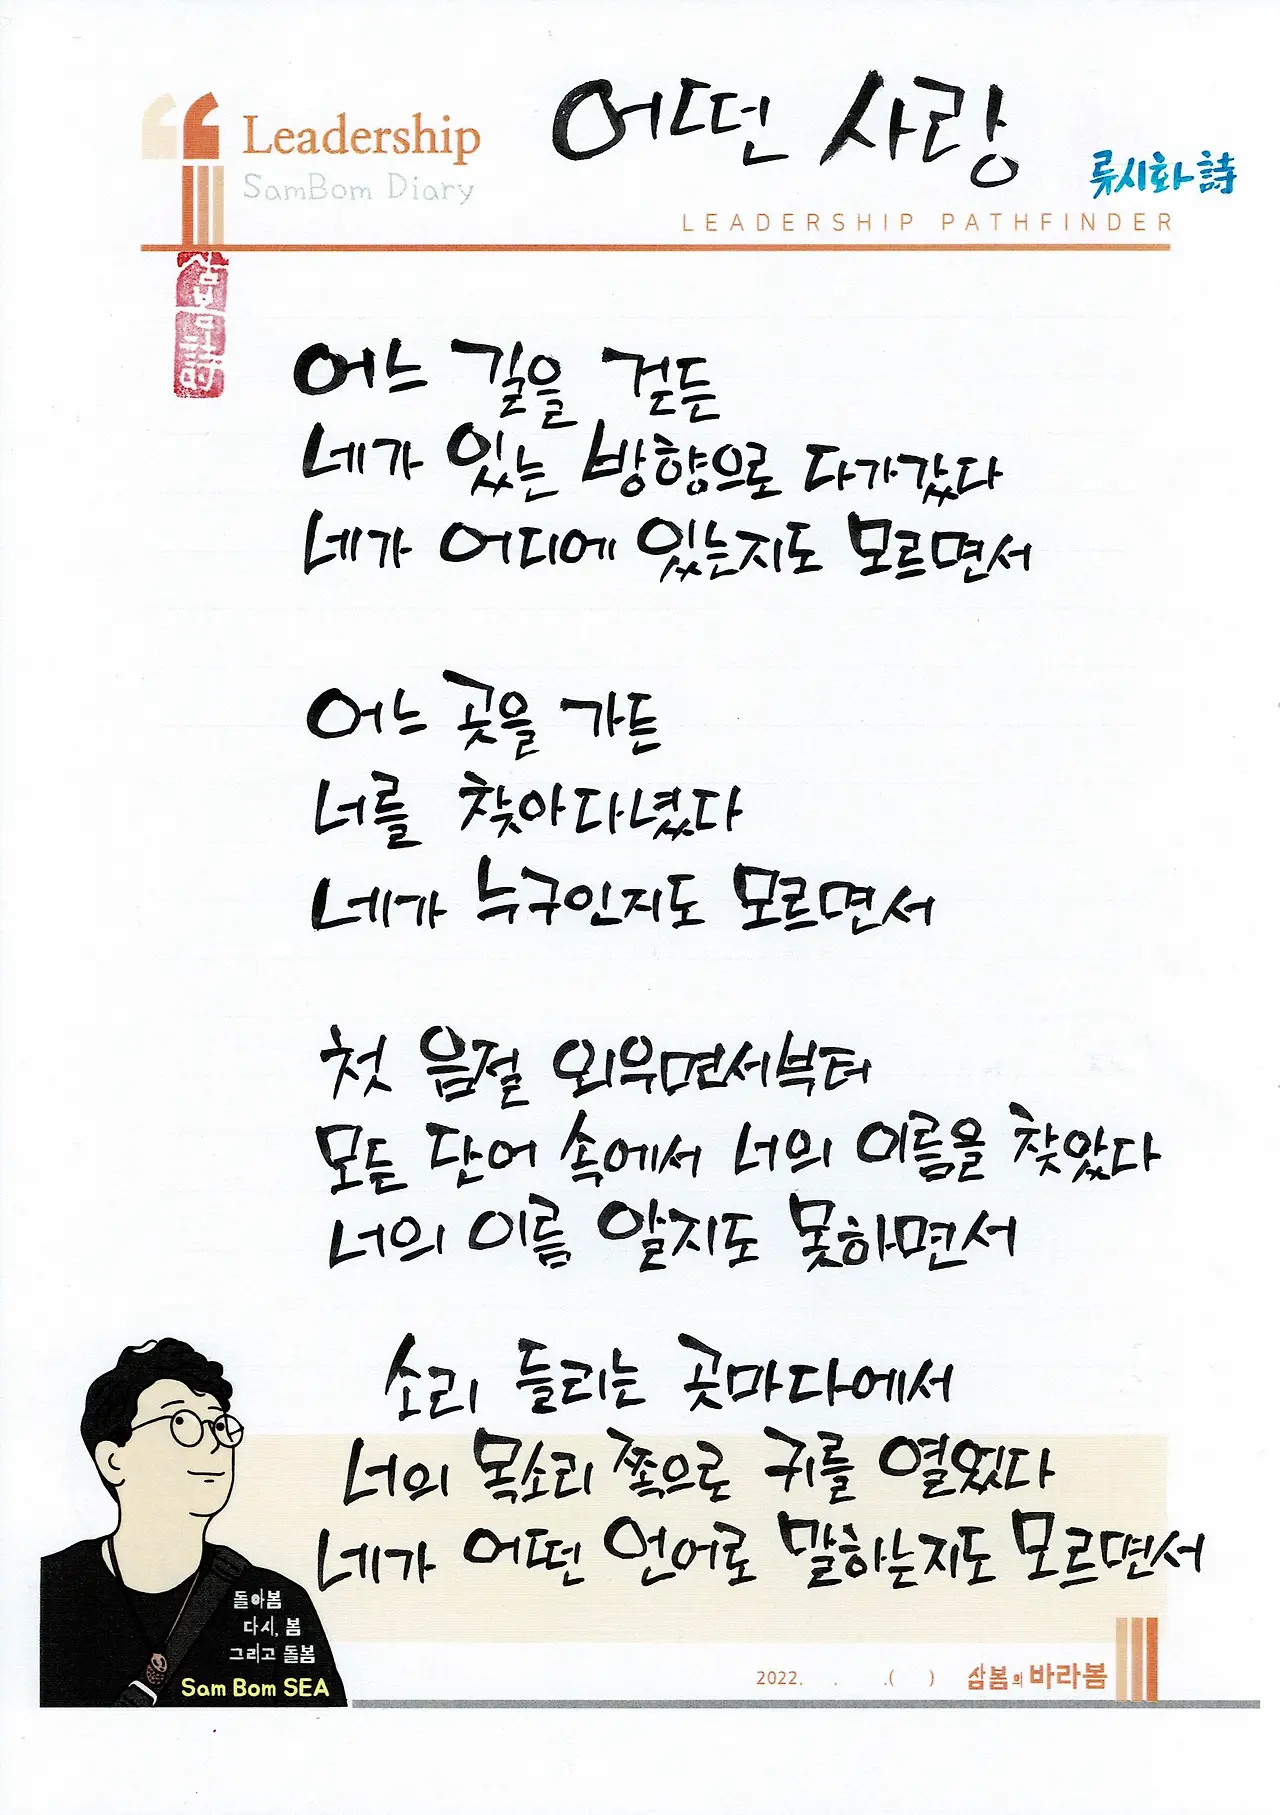 Leadership
SamBom Diary
어떤 사랑
류시화 詩
LEADERSHIP PATHFINDER
삼봄詩
어느 길을 걷든
네가 있는 방향으로 다가갔다
네가 어디에 있는지도 모르면서
어느 곳을 가든
너를 찾아다녔다
네가 누구인지도 모르면서
첫 음절 외우면서부터
모든 단어 속에서 너의 이름을 찾았다
너의 이름 알지도 못하면서
소리 들리는 곳마다에서
너의 목소리 쪽으로 귀를 열었다
네가 어떤 언어로 말하는지도 모르면서
돌아봄
다시, 봄
그리고 돌봄
Sam Bom SEA
2022. . .( ) 삼봄의 바라봄